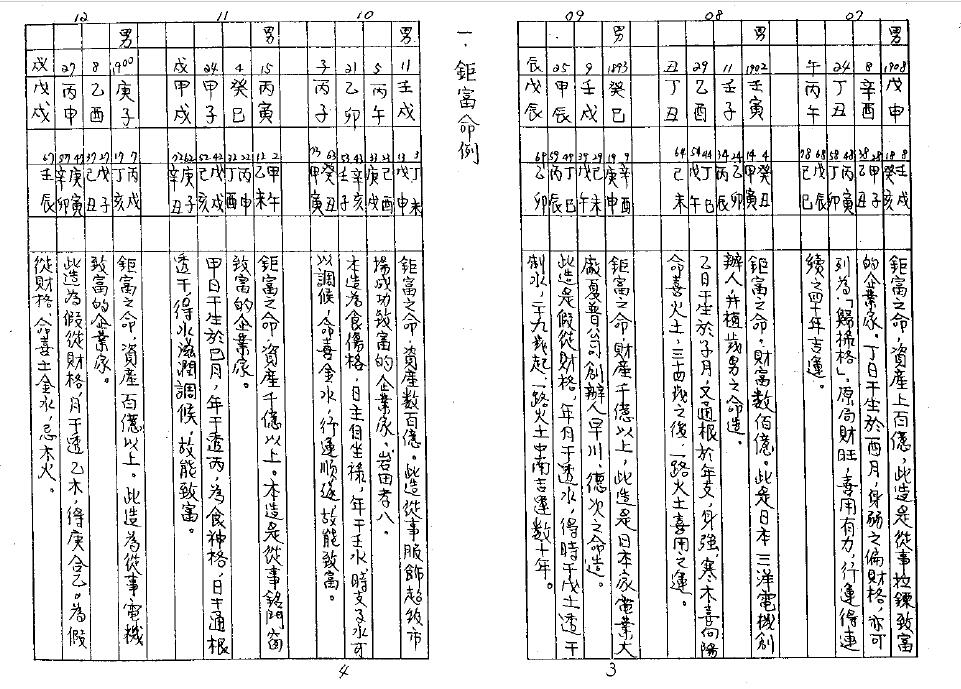 07
男
1908 戊申
8 辛酉
24 丁丑
午 丙午
8 壬戌
18 癸亥
28 甲子
38 乙丑
48 丙寅
58 丁卯
68 戊辰
78 己巳
鉅富之命，資產上百億，此造是從事拉鍊致富
的企業家。丁日干生於酉月，身弱之偏財格，亦可
列為「歸祿格」，原局財旺，喜用有力，行運得連
續之四十年吉運。
08
男
1902 壬寅
11 壬子
29 乙酉
丑 丁丑
4 癸丑
14 甲寅
24 乙卯
34 丙辰
44 丁巳
54 戊午
64 己未
鉅富之命，財富數佰億。此是日本三洋電機創
辦人井植歲男之命造。
乙日干生於子月，又通根於年支，身強，寒木喜向陽
命喜火土，三十四歲之後，一路火土喜用之運。
09
男
1893 癸巳
9 壬戌
25 甲辰
辰 戊辰
9 辛酉
19 庚申
29 己未
39 戊午
49 丁巳
59 丙辰
69 乙卯
鉅富之命，財產千億以上，此造是日本家電業大
廠夏普公司創辦人早川，德次之命造。
此造是假從財格，年月干透水，得時干戊土透干
制水，二十九歲起一路火土中南吉運數十年。
3
一．鉅富命例
10
男
11 壬戌
5 丙午
21 乙卯
子 丙子
3 丁未
13 戊申
23 己酉
33 庚戌
43 辛亥
53 壬子
63 癸丑
73 甲寅
鉅富之命，資產數百億。此造從事服飾超級市
場成功致富的企業家。岩田孝八。
本造為食傷格，日主自坐祿，年干壬水，時支子水可
以調候，命喜金水，行運順遂，故能致富。
11
男
15 丙寅
4 癸巳
24 甲子
戌 甲戌
2 甲午
12 乙未
22 丙申
32 丁酉
42 戊戌
52 己亥
62 庚子
72 辛丑
鉅富之命，資產千億以上。本造是從事鋁門窗
致富的企業家。
甲日干生於巳月，年干透丙，為食神格，日主通根
透干得水滋潤調候，故能致富。
12
男
1900 庚子
8 乙酉
27 丙申
戌 戊戌
7 丙戌
17 丁亥
27 戊子
37 己丑
47 庚寅
57 辛卯
67 壬辰
鉅富之命，資產百億以上。此造為從事電機
致富的企業家。
此造為假從財格，月干透乙木，得庚合乙。為假
從財格，命喜土金水，忌木火。
4